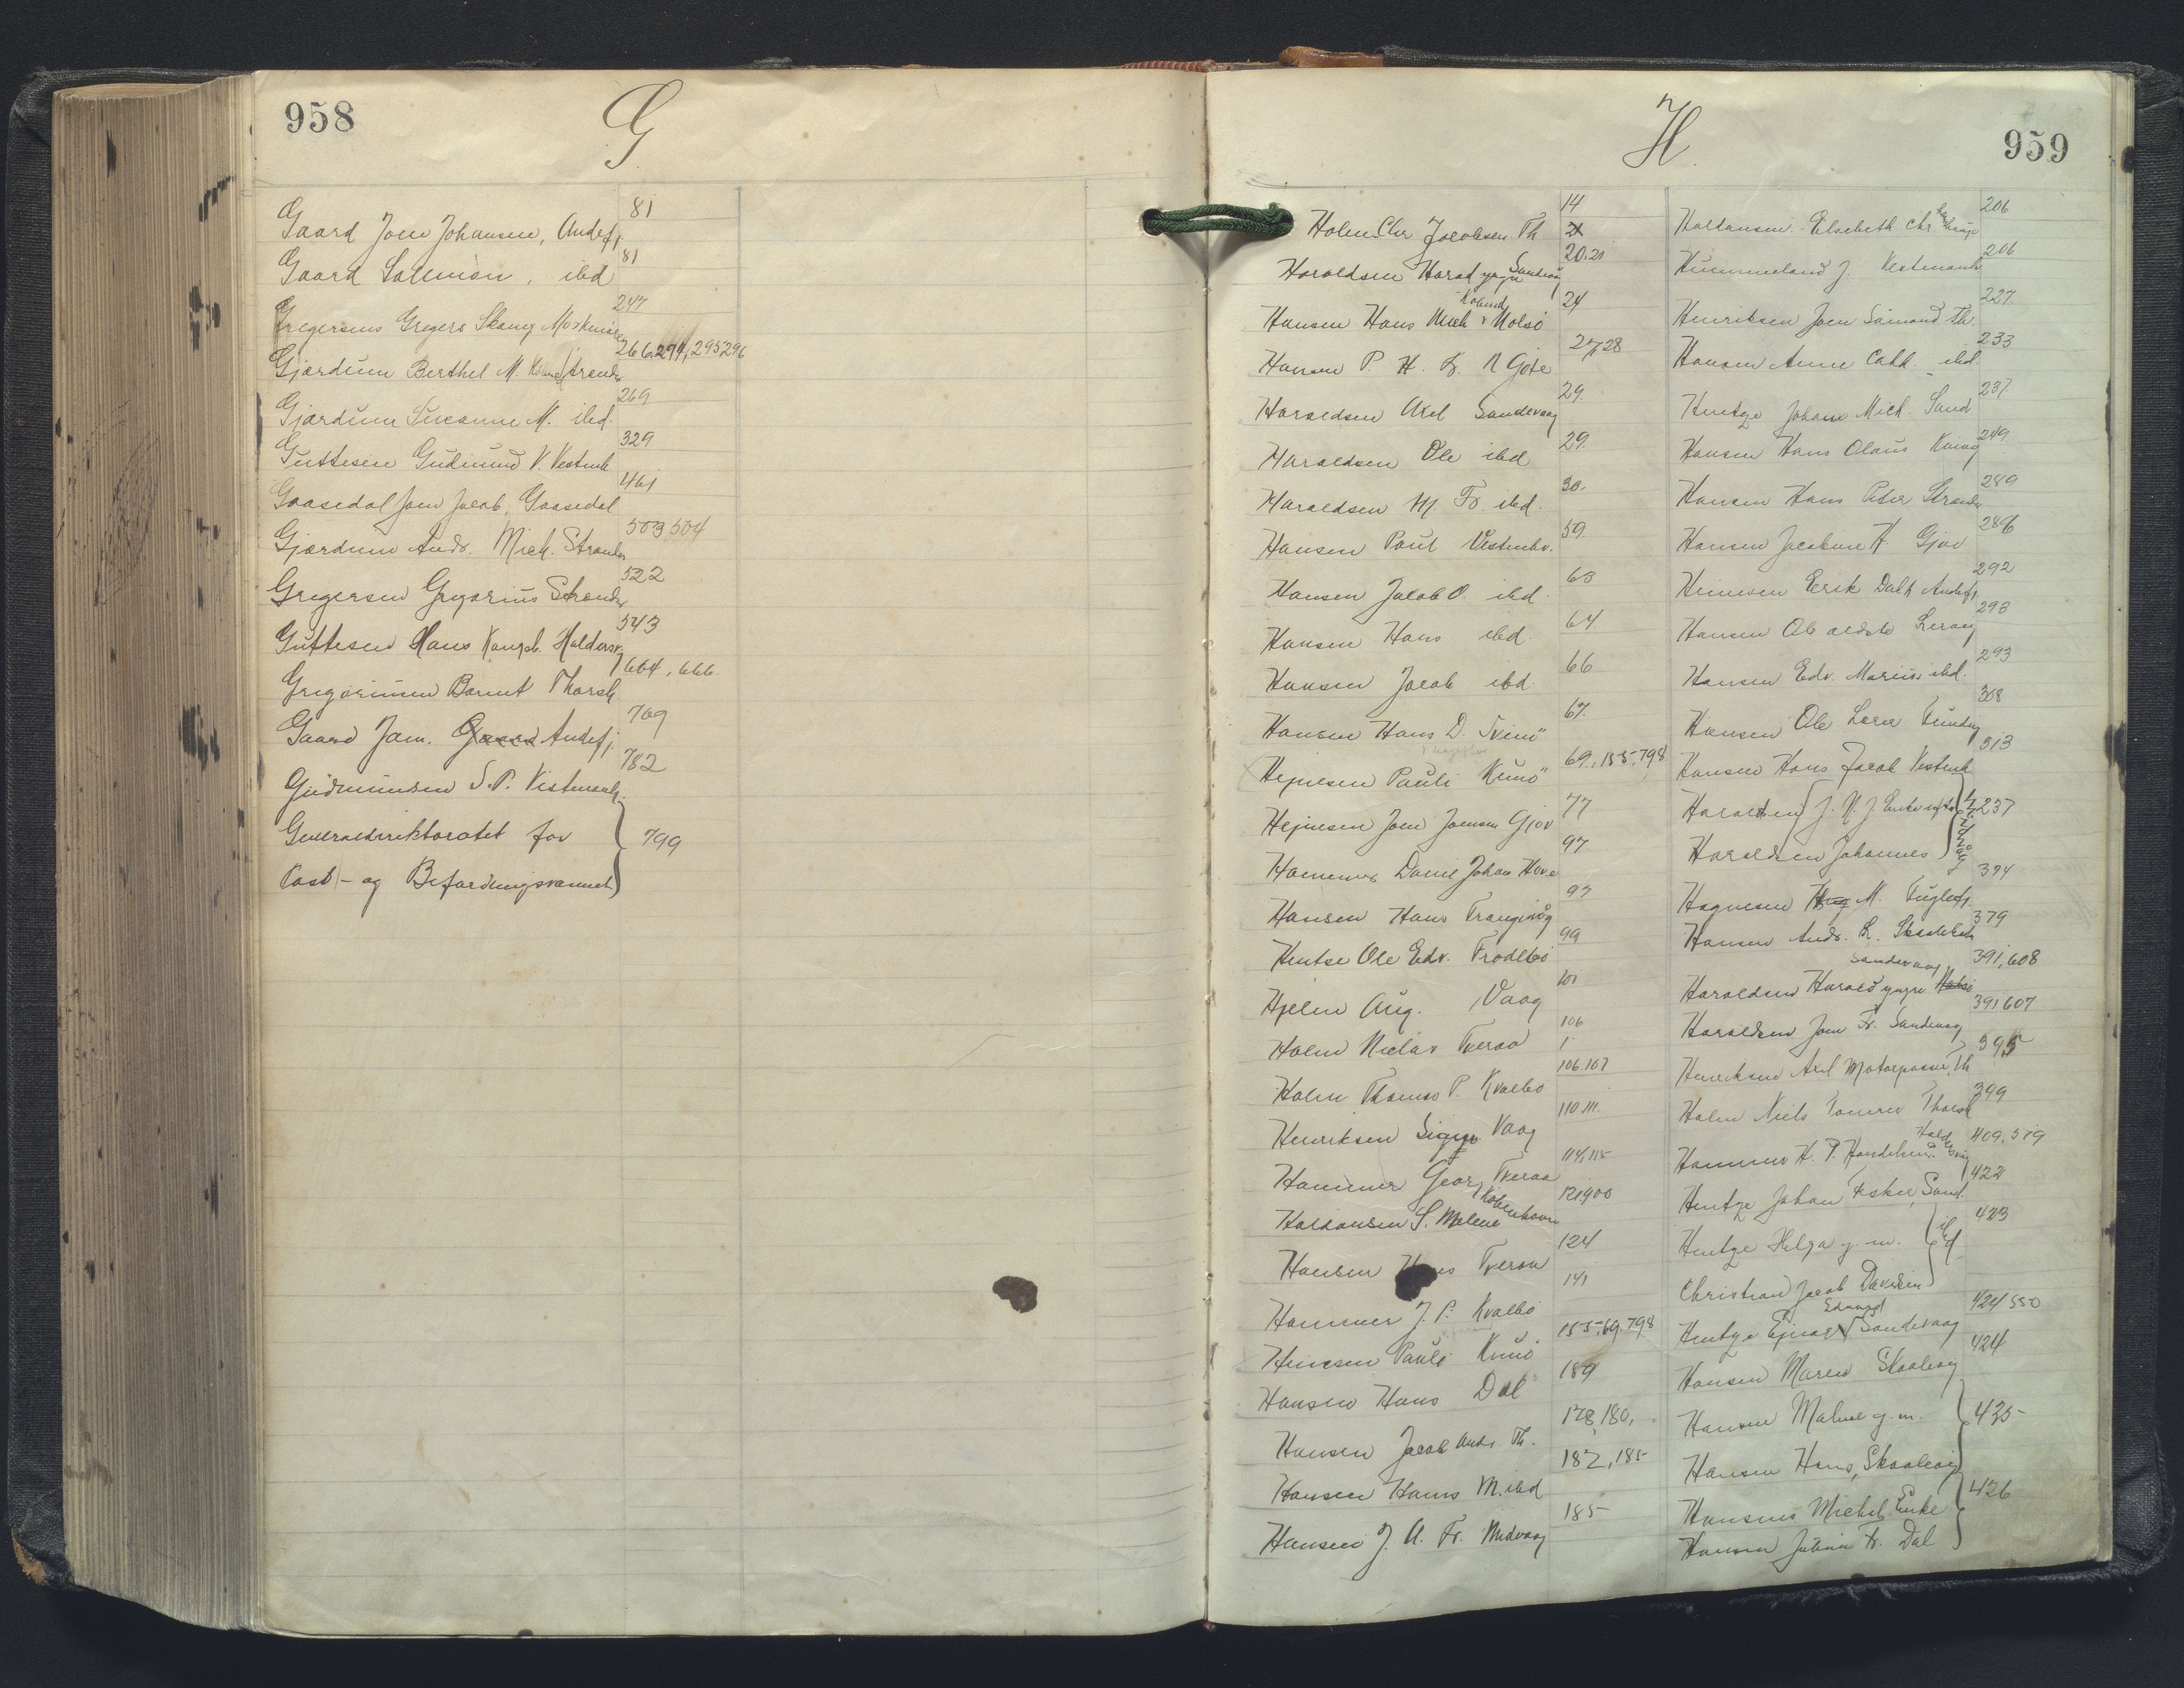 958
G
Gaard Joen Johansen, Andefj. 81
Gaard Salmon, ibd 81
Gregersens Gregers 247
Gjærdum Berthel M. Strender 266, 294, 295 296
Gjærdum Susanne M. ibd. 269
Guttesen Gudmund V. Vestmh 329
Gaasedal Joen Jacob, Gaasedal 461
Gjærdum Andr. Mich. Strender 503, 504
Gregersen Gregorius Strender 522
Guttesen Hans Kongsb. Haldersv. 543
Gregoriussen Barent Thorsh. 664, 666.
Gaard Jam. Gaard Andefj. 709
Gudmundsen S. P. Vestmanh. 782
Generaldirektoratet for
Post- og Befordringsvæsnet 799
959
H.
14
Holm Chr Jacobsen Th 21
Haroldsen Harad yngre Sandevåg 20.21
Hansen Hans Mich Nolsö 24
Hansen P. H. Fr. N Göte 27,28
Haraldsen Axel Sandevaag 29.
Haraldsen Ole ibd 29.
Haraldsen M. Fr. ibd. 30.
Hansen Poul Vestmhv. 59.
Hansen Jacob O. ibd. 63
Hansen Hans ibd. 64
Hansen Jacob ibd. 66
Hansen Hans D. Svinö 67.
Hejnesen Pauli Kunö 69, 155, 798
Hejnesen Joen Joensen Gjov 77
Hammer Daniel Johan Hove 97
Hansen Hans Trangisvåg 97
Hentze Ole Edv. Frodebö 99
Hjelm Aug. Vaag 101
Holm Niclas Tveraa 106
Holm Thomas P. Kvalbö 106.107
Henriksen Vaag 110.111.
Hammer Georg Tveraa 114, 115
Haldansen S. Malene Köbenhavn 121,900
Hansen Hans Tveraa 124
Hammer J. P. Kvalbö 141
Heinesen Pauli Kunö 155, 69, 798
Hansen Hans Dal 159
Hansen Jacob Andr. Th. 178, 180,
Hansen Hans M. ibd 182, 185
Hansen J. A. Fr. Midvaag 185
Haldansen Elsebeth Chr. 206
Hummeland J. Vestmanh 206
Henriksen Joen Samond Th. 227.
Hansen Anne Cath. ibd. 233
Hentze Johan Mich. Sand 237
Hansen Hans Olaus 249
Hansen Hans Peter Strender 289
Hansen Jacobine H. Gjov 286
Heinesen Eerik Dalh Andefj. 292
Hansen Ole ældste Lervig 293
Hansen Edv. Marius ibd. 293
Hansen Ole Lærer Funding 308
Hansen Hans Jacob Vestmh 313
Haraldsen J. N. J. Enke 237
Haraldsen Johannes
Hognesen M. Fuglefj. 374
Hansen Andr. L. 379
Haraldsen Harald yngre Sandevaag 391, 608
Haraldsen Joen Fr. Sandevaag 391 607
Henriksen Axel Motorpasser, Th 395
Holm Niels Tömrer Thorsh 399
Hammer H. P. Handelsm. Haldersvig 409, 579
Hentze Johan Fisker, Sand. 422
Hentze Helga g. m. ibd 423
Christian Jacob Davidsen
Hentze Ejnar Edvard Sandevaag 424 550
Hansen Maren Skaalevig 424
Hansen Malene g. m. 425
Hansen Hans, Skaalevig
Hansens Michel Enke 426
Hansen Juliane Fr. Dal